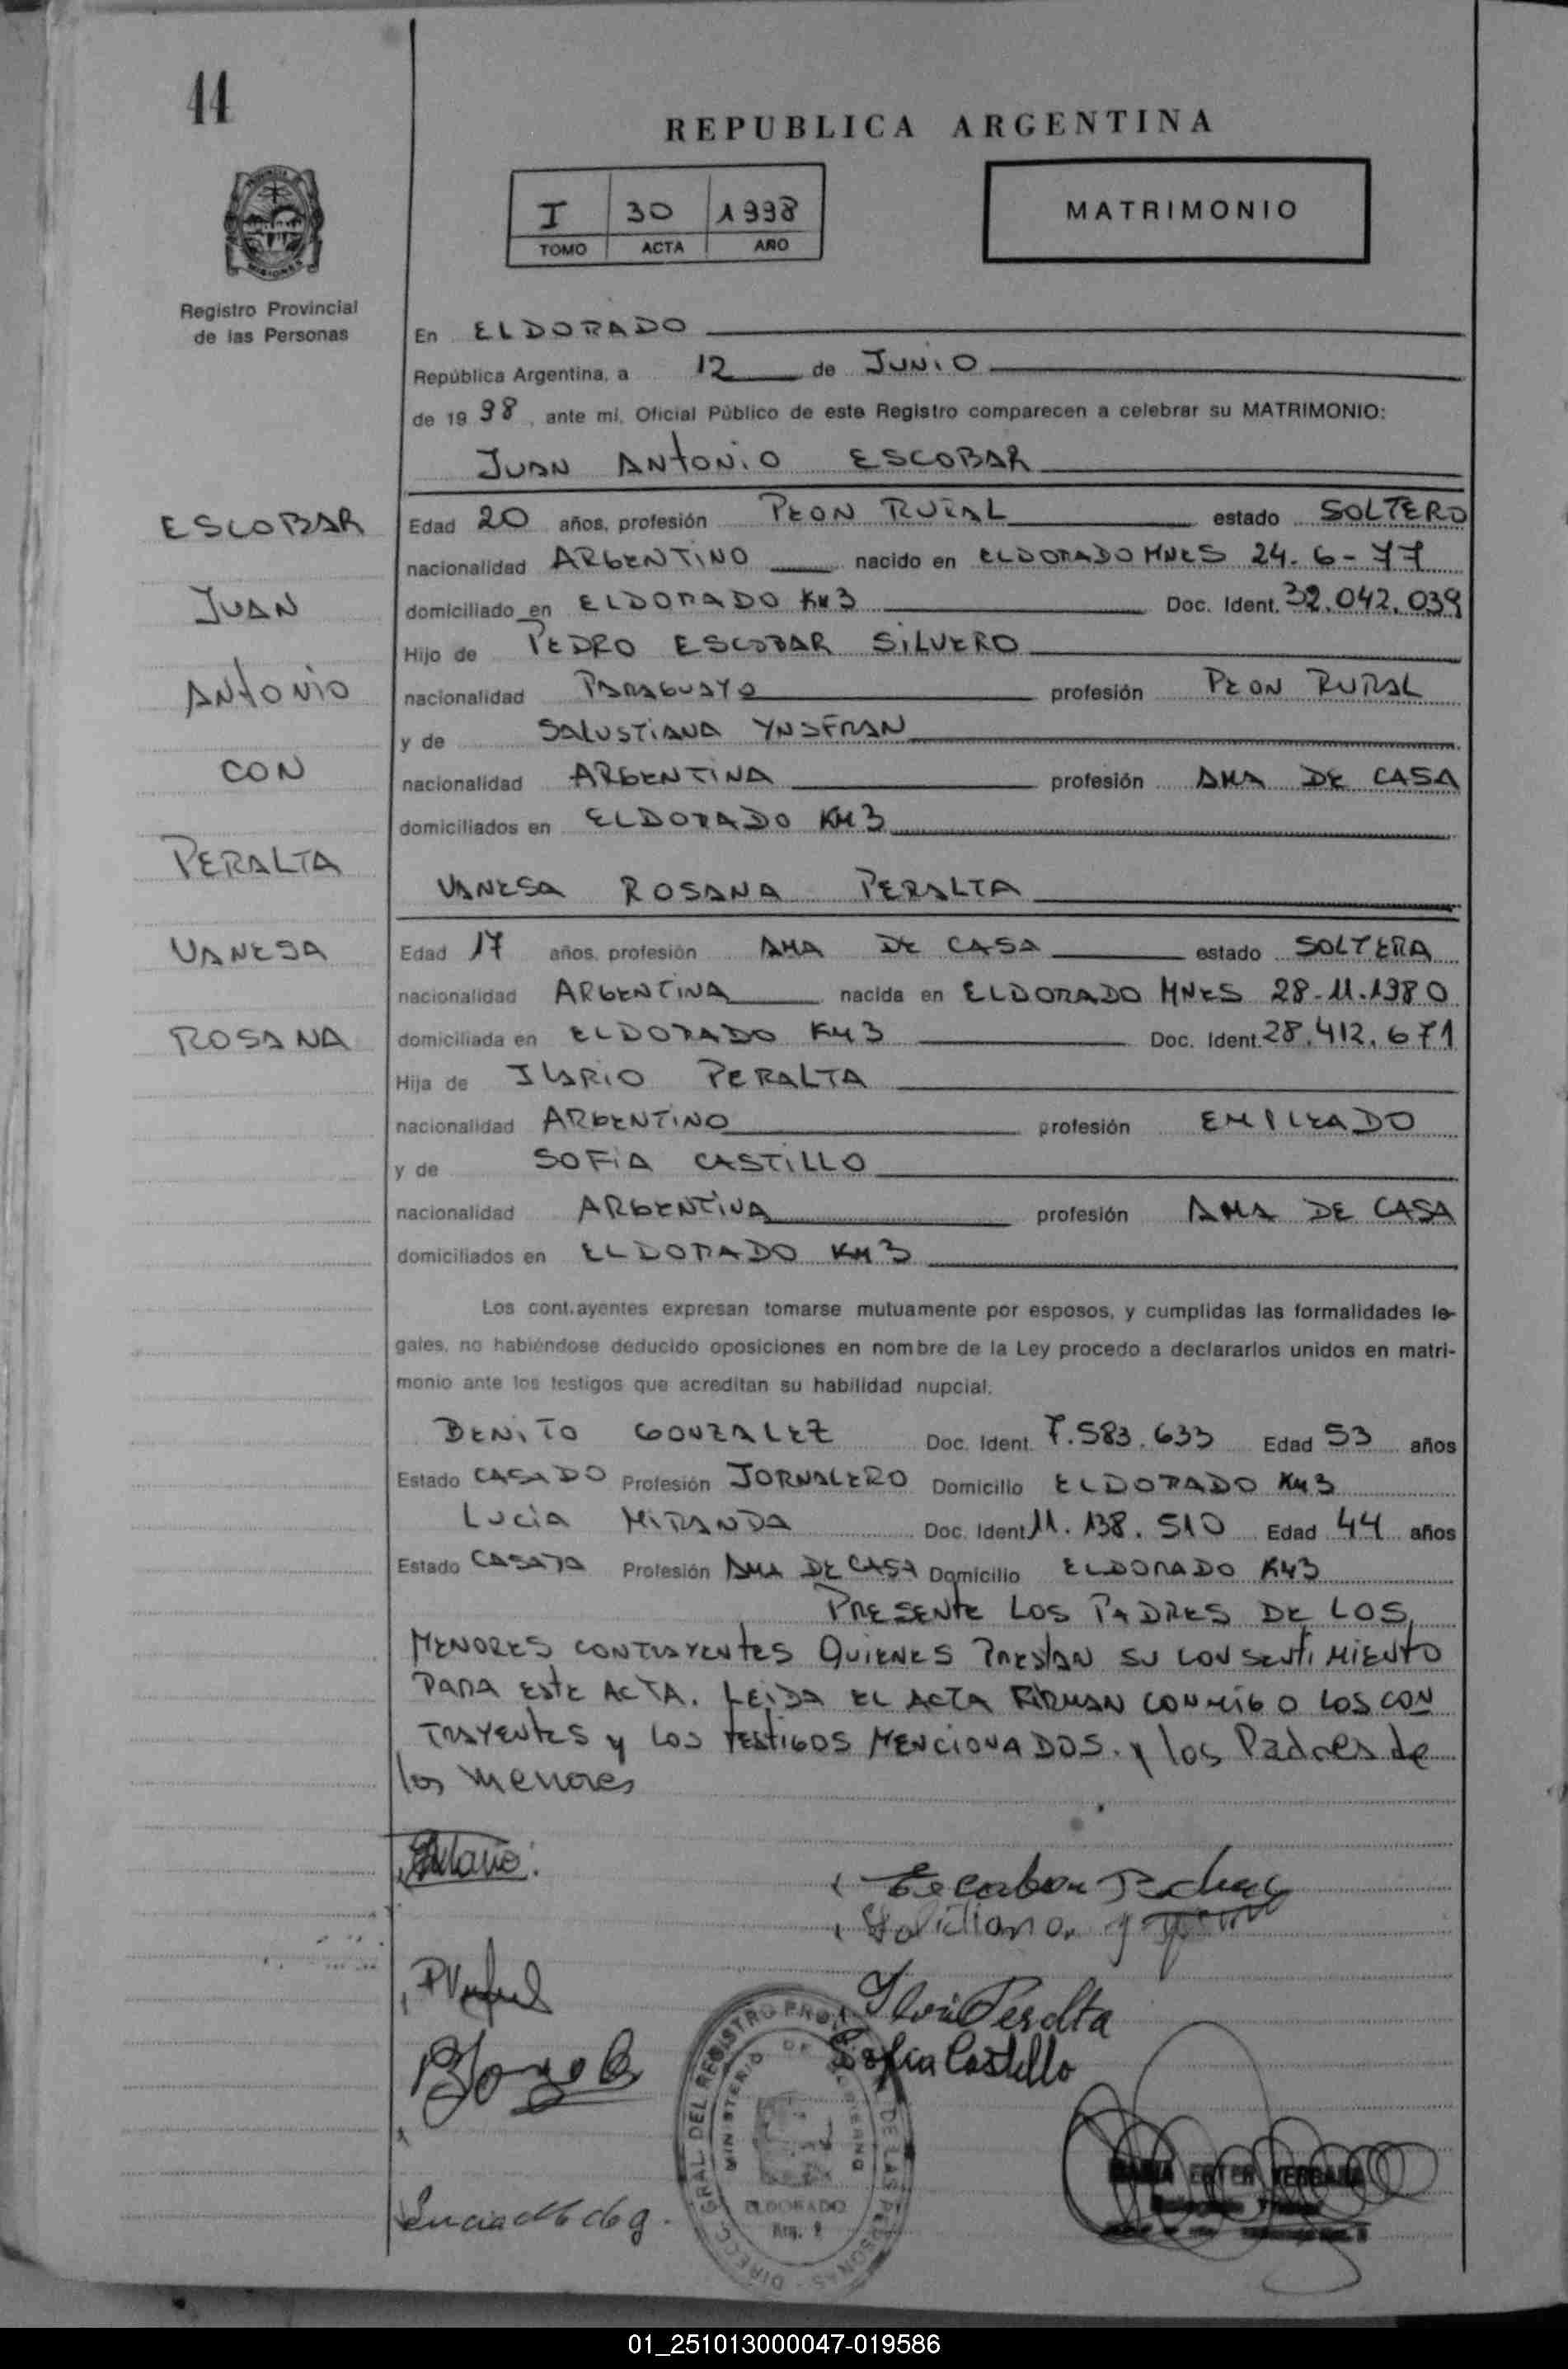 11
REPUBLICA ARGENTINA
I 30 1998
TOMO ACTA AÑO
MATRIMONIO
Registro Provincial
de las Personas
En ELDORADO
República Argentina, a 12 de JUNIO
de 19 98, ante mí, Oficial Público de este Registro comparecen a celebrar su MATRIMONIO:
JUAN ANTONIO ESCOBAR
ESCOBAR
JUAN
ANTONIO
CON
PERALTA
VANESA
ROSANA
Edad 20 años, profesión PEON RURAL estado SOLTERO
nacionalidad ARGENTINO nacido en ELDORADO MNES 24-6-77
domiciliado en ELDORADO KM3 Doc. Ident. 32.042.039
Hijo de PEDRO ESCOBAR SILVERO
nacionalidad PARAGUAYO profesión PEON RURAL
y de SALUSTIANA YNSFRAN
nacionalidad ARGENTINA profesión AMA DE CASA
domiciliados en ELDORADO KM3
VANESA ROSANA PERALTA
Edad 17 años, profesión AMA DE CASA estado SOLTERA
nacionalidad ARGENTINA nacida en ELDORADO MNES 28-11.1980
domiciliada en ELDORADO KM3 Doc. Ident. 28.412.671
Hija de ILARIO PERALTA
nacionalidad ARGENTINO profesión EMPLEADO
y de SOFIA CASTILLO
nacionalidad ARGENTINA profesión AMA DE CASA
domiciliados en ELDORADO KM3
Los cont.ayentes expresan tomarse mutuamente por esposos, y cumplidas las formalidades le-
gales, no habiéndose deducido oposiciones en nombre de la Ley procedo a declararlos unidos en matri-
monio ante los testigos que acreditan su habilidad nupcial.
BENITO GONZALEZ Doc. Ident. 7.583.633 Edad 53 años
Estado CASADO Profesión JORNALERO Domicilio ELDORADO KM3
LUCIA MIRANDA Doc. Ident. 11.138.510 Edad 44 años
Estado CASADA Profesión AMA DE CASA Domicilio ELDORADO KM3
PRESENTE LOS PADRES DE LOS
MENORES CONTRAYENTES QUIENES PRESTAN SU CONSENTIMIENTO
PARA ESTE ACTA. LEIDA EL ACTA FIRMAN CONMIGO LOS CON
TRAYENTES y LOS TESTIGOS MENCIONADOS. y los Padres de
los menores
Ilario Peralta
Sofia Castillo
DIRECC. GRAL. DEL REGISTRO PROV. DE LAS PERSONAS
MINISTERIO DE GOBIERNO
ELDORADO
01_251013000047-019586